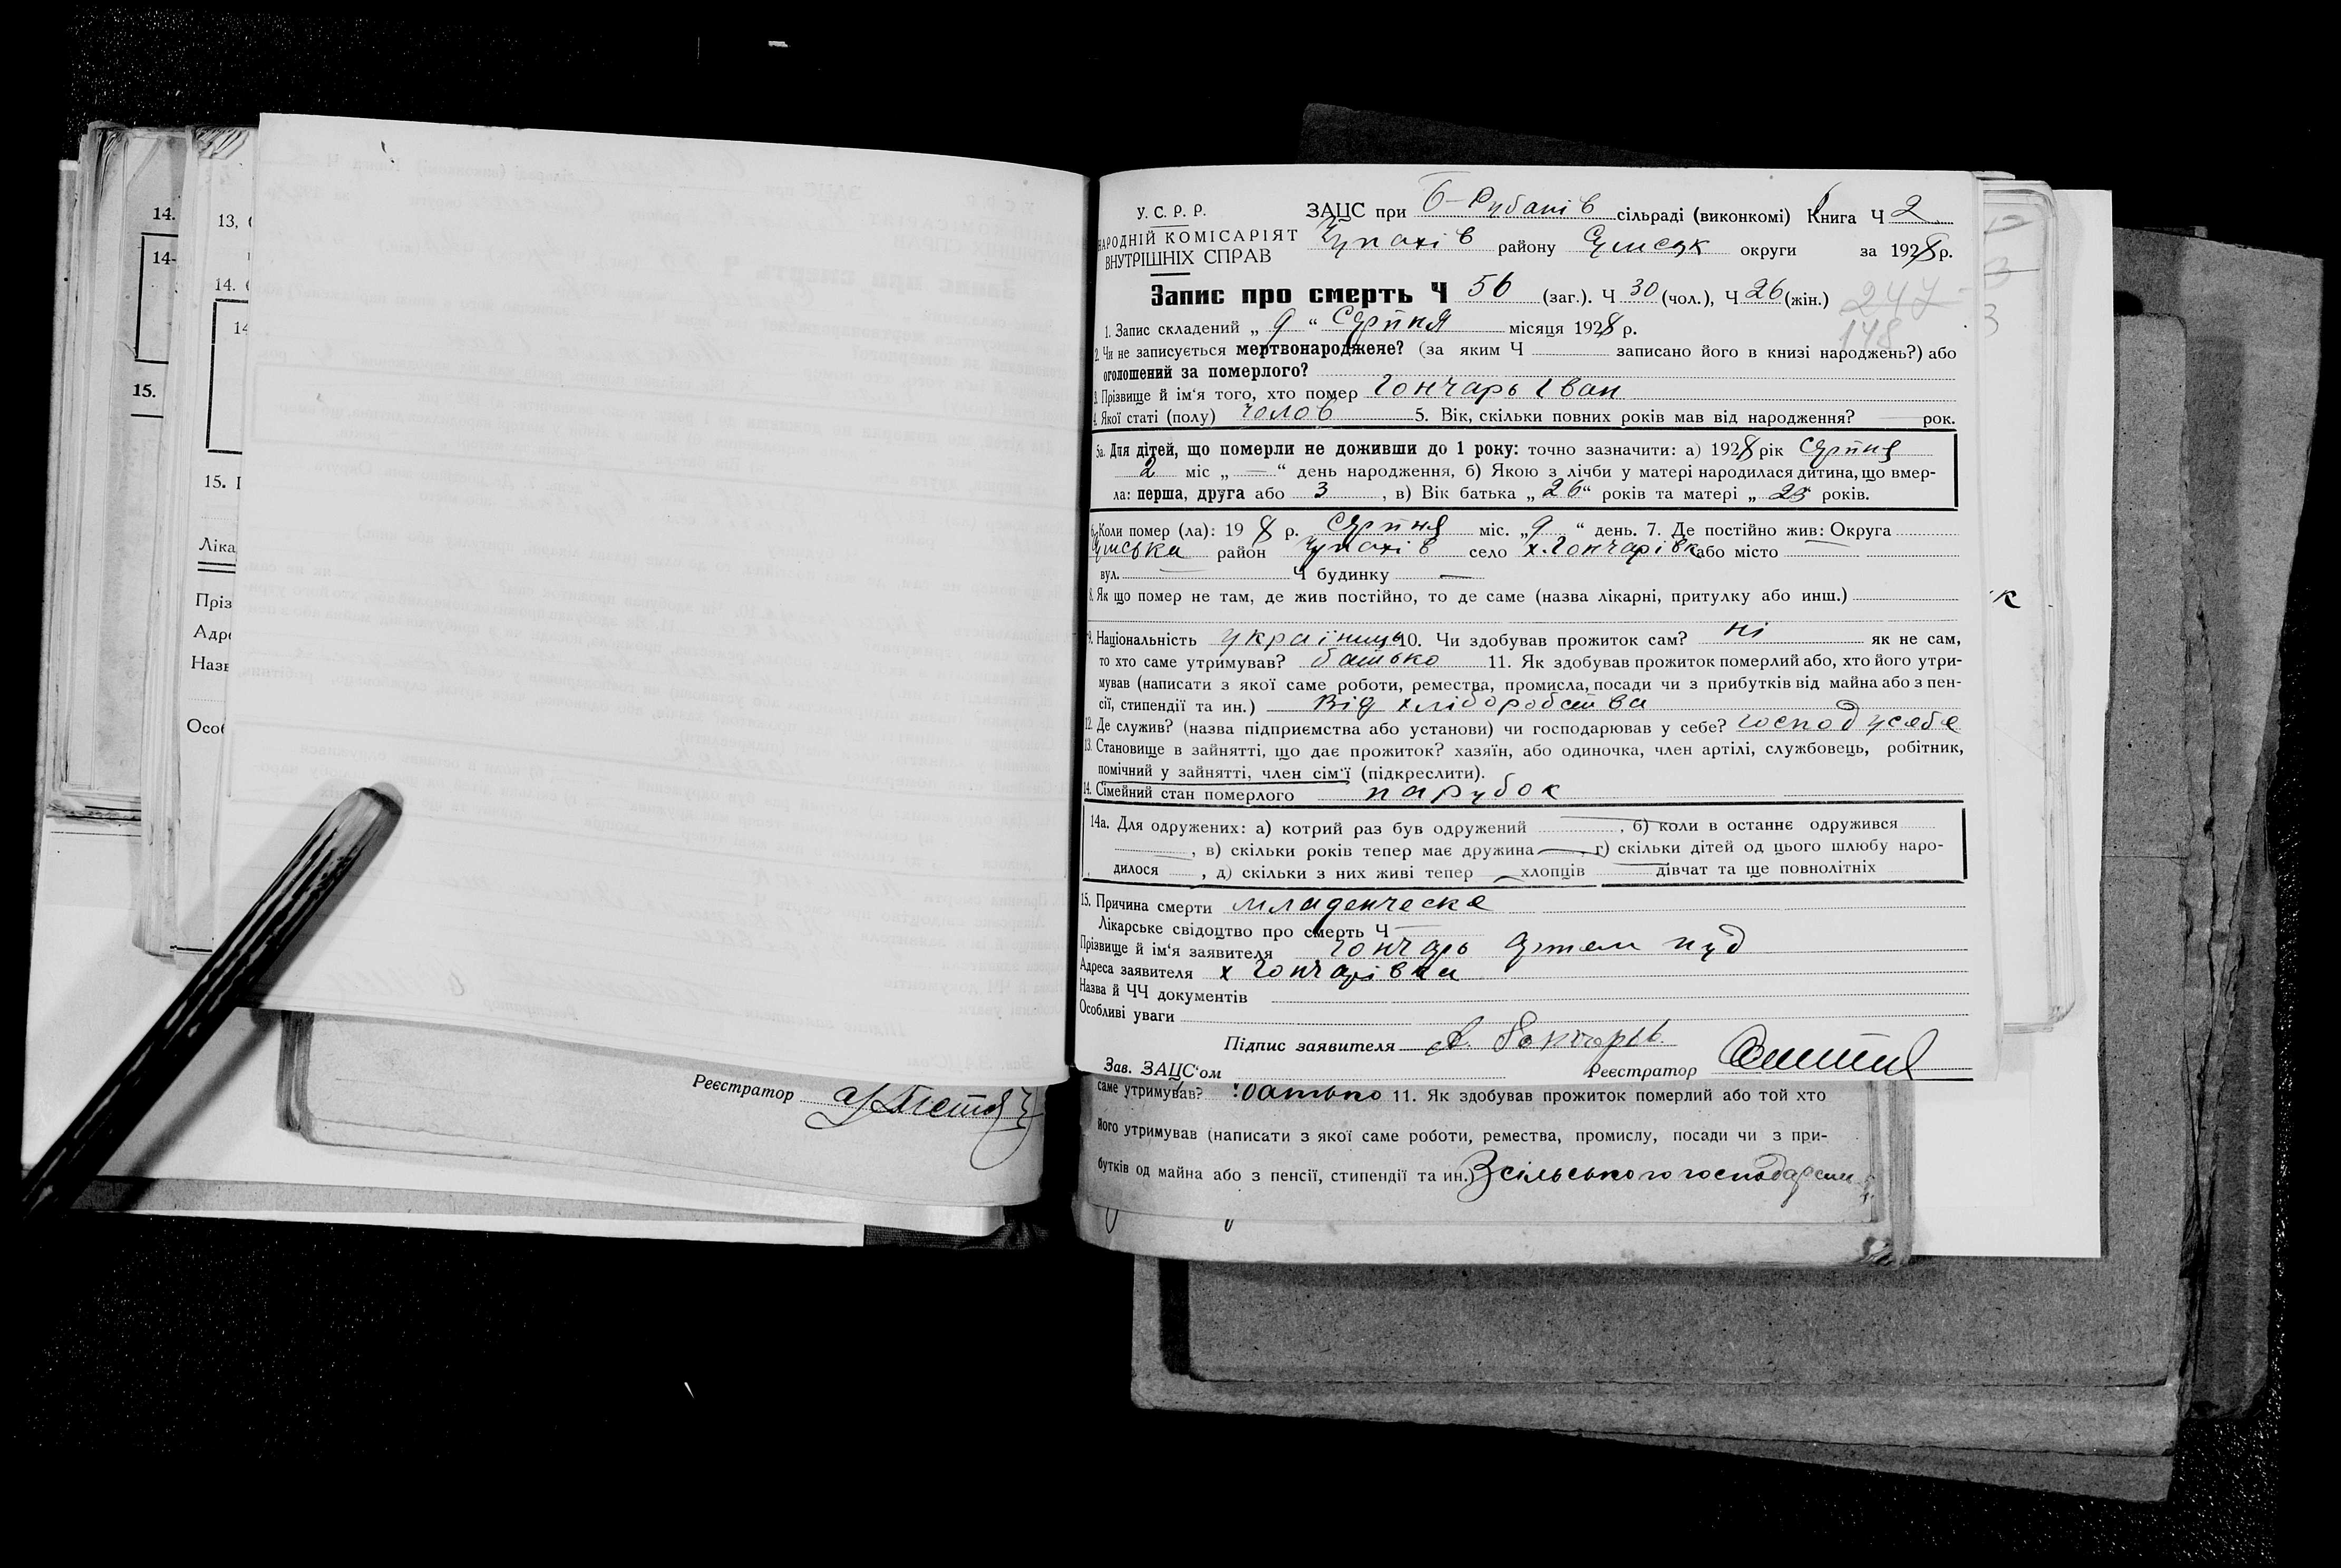 14.
14-
15.
13, (
14. (
14
15. І
Ліка
Пріз
Адре
Назв
Особ
Реєстратор
У. С. Р. Р.
НАРОДНІЙ КОМІСАРІЯТ
ВНУТРІШНІХ СПРАВ
ЗАЦС при Б-Рубанів сільраді (виконкомі) Книга Ч 2
Чупахів району Сумськ округи за 1928 р.
Запис про смерть Ч 56 (заг.). Ч 30 (чол.), Ч 26 (жін.)
247
148
1. Запис складений „ 9 “ Серпня місяця 1928 р.
2. Чи не записується мертвонароджене? (за яким Ч записано його в книзі народжень?) або
оголошений за померлого?
3. Прізвище й ім'я того, хто помер Гончарь Іван
4. Якої статі (полу) чолов 5. Вік, скільки повних років мав від народження? рок.
5а. Для дітей, що померли не доживши до 1 року: точно зазначити: а) 1928 рік Серпня
2 міс „ — “ день народження, б) Якою з лічби у матері народилася дитина, що вмер-
ла: перша, друга або 3 , в) Вік батька „ 26 “ років та матері „ 25 років.
6. Коли помер (ла): 19 8 р. Серпня міс. „ 9 “ день. 7. Де постійно жив: Округа
Сумська район Чупахів село х. Гончарівка або місто —
вул. — Ч будинку —
8. Як що помер не там, де жив постійно, то де саме (назва лікарні, притулку або инш.)
9. Національність українець 10. Чи здобував прожиток сам? ні як не сам,
то хто саме утримував? батько 11. Як здобував прожиток померлий або, хто його утри-
мував (написати з якої саме роботи, ремества, промисла, посади чи з прибутків від майна або з пен-
сії, стипендії та ин.) Від хліборобства
12. Де служив? (назва підприємства або установи) чи господарював у себе? господ у себе
13. Становище в зайнятті, що дає прожиток? хазяїн, або одиночка, член артілі, службовець, робітник,
помічний у зайнятті, член сім'ї (підкреслити).
14. Сімейний стан померлого парубок
14а. Для одружених: а) котрий раз був одружений , б) коли в останнє одружився
, в) скільки років тепер має дружина , г) скільки дітей од цього шлюбу наро-
дилося , д) скільки з них живі тепер хлопців дівчат та ще повнолітніх
15. Причина смерти младенческе
Лікарське свідоцтво про смерть Ч —
Прізвище й ім'я заявителя Гончарь
Адреса заявителя х Гончарівка
Назва й ЧЧ документів
Особливі уваги
Підпис заявителя А. Гончарь
Зав. ЗАЦС'ом Реєстратор
саме утримував? батько 11. Як здобував прожиток померлий або той хто
його утримував (написати з якої саме роботи, ремества, промислу, посади чи з при-
бутків од майна або з пенсії, стипендії та ин.) З сільського господарств